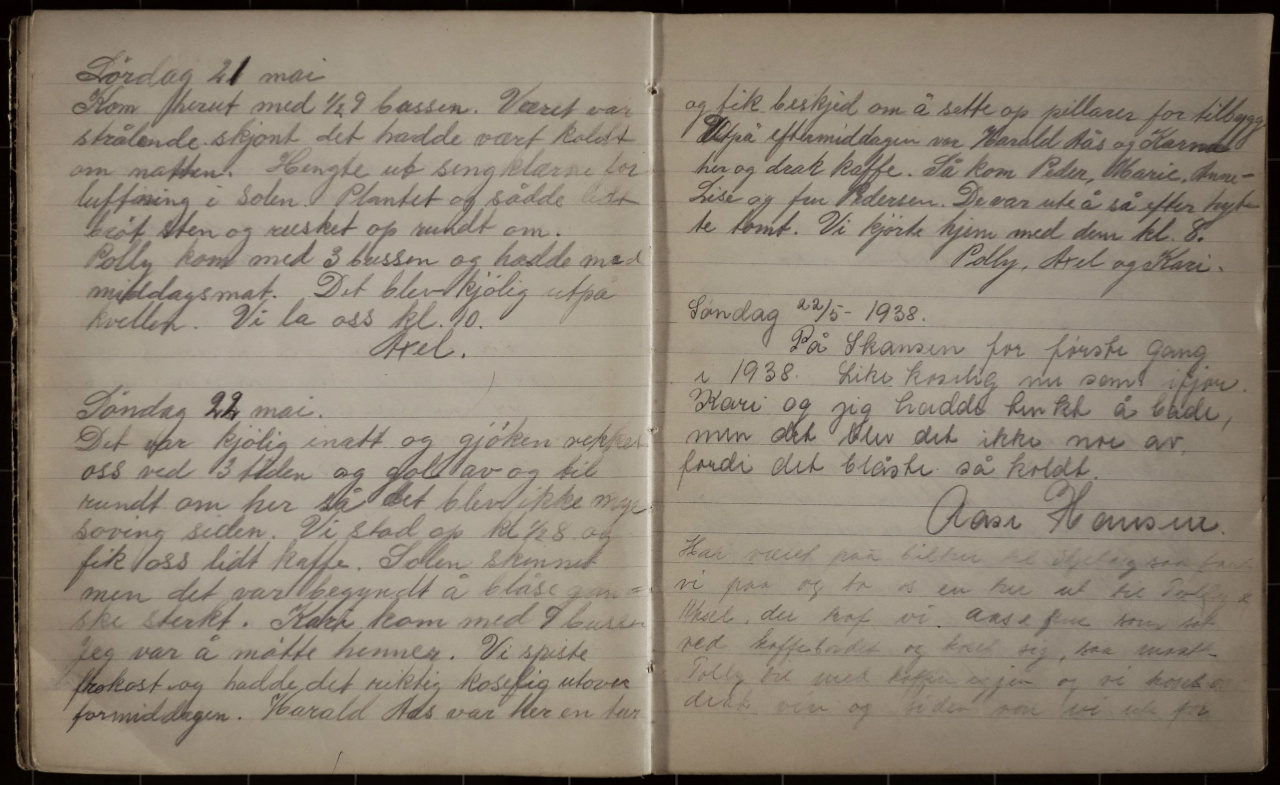 Lørdag 21 mai
Kom herut med ½ 9 bussen. Været var
strålende skjønt det hadde vært koldt
om natten. Hengte ut sengklærne for
luftning i solen. Plantet og sådde lidt
brøt sten og rusket op rundt om.
Polly kom med 3 bussen og hadde med
middagsmat. Det blev kjølig utpå
kvellen. Vi la oss kl. 10.
Axel.
Søndag 22 mai.
Det var kjølig inatt og gjøken vekket
oss ved 3 tiden og gol av og til
rundt om her så det blev ikke mye
soving siden. Vi stod op kl ½ 8 og
fik oss lidt kaffe. Solen skinnet
men det var begyndt å blåse gan-
ske sterkt. Kari kom med 9 bussen
Jeg var å møtte henner. Vi spiste
frokost og hadde det riktig koselig utover
formiddagen. Harald Aas var her en tur
og fik beskjed om å sette op pillarer for tilbygg
Utpå eftermiddagen var Harald Aas og Karna
her og drak kaffe. Så kom Peder, Marie, Anne-
Lise og fru Pedersen. De var ute å så efter hyt-
te tomt. Vi kjørte hjem med dem kl. 8.
Polly, Axel og Kari.
Søndag 22/5 - 1938.
På Skansen for første gang
i 1938. Like koselig nu som ifjor.
Kari og jig hadde tenkt å bade,
men det blev det ikke noe av,
fordi det blåste så koldt.
Aase Hansen.
Har været paa biltur til saa
vi paa og to os en tur ut til Polly &
Aksel, der traf vi. Aase som sat
ved kaffebordet og koset sig, saa maatte
Polly til med kaffen igjen og vi koset
drak vin og siden var vi ute for